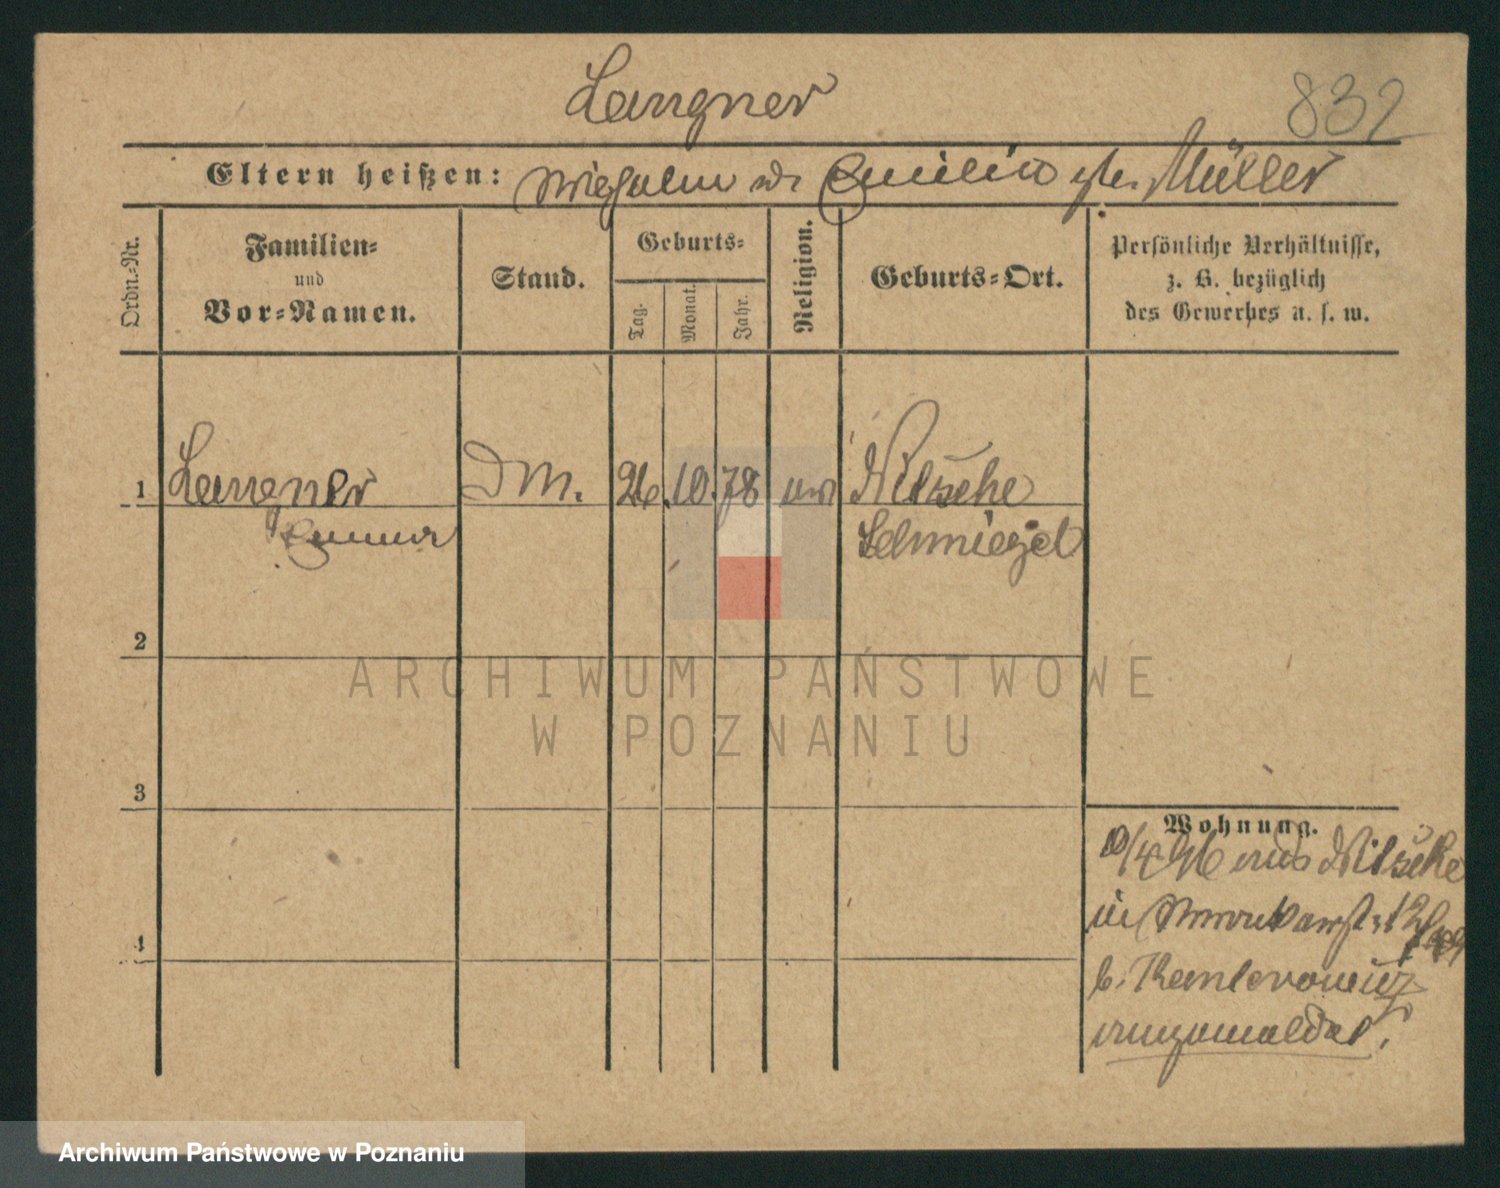 Langner
832
Eltern heißen: Wilhelm u. Emilie geb. Müller
Ordn.-Nr.
Familien-
und
Vor-Namen.
Stand.
Geburts-
Tag.
Monat.
Jahr.
Religion.
Geburts-Ort.
Persönliche Verhältnisse,
z. B. bezüglich
des Gewerbes u. s. w.
1 Langner DM. 26. 10. 78 Nitsche
Emma Schmiegel
2
3
4
Wohnung.
10/4 96 aus Nitsche
in
b.
angemeldet.
ARCHIWUM PAŃSTWOWE
W POZNANIU
Archiwum Państwowe w Poznaniu